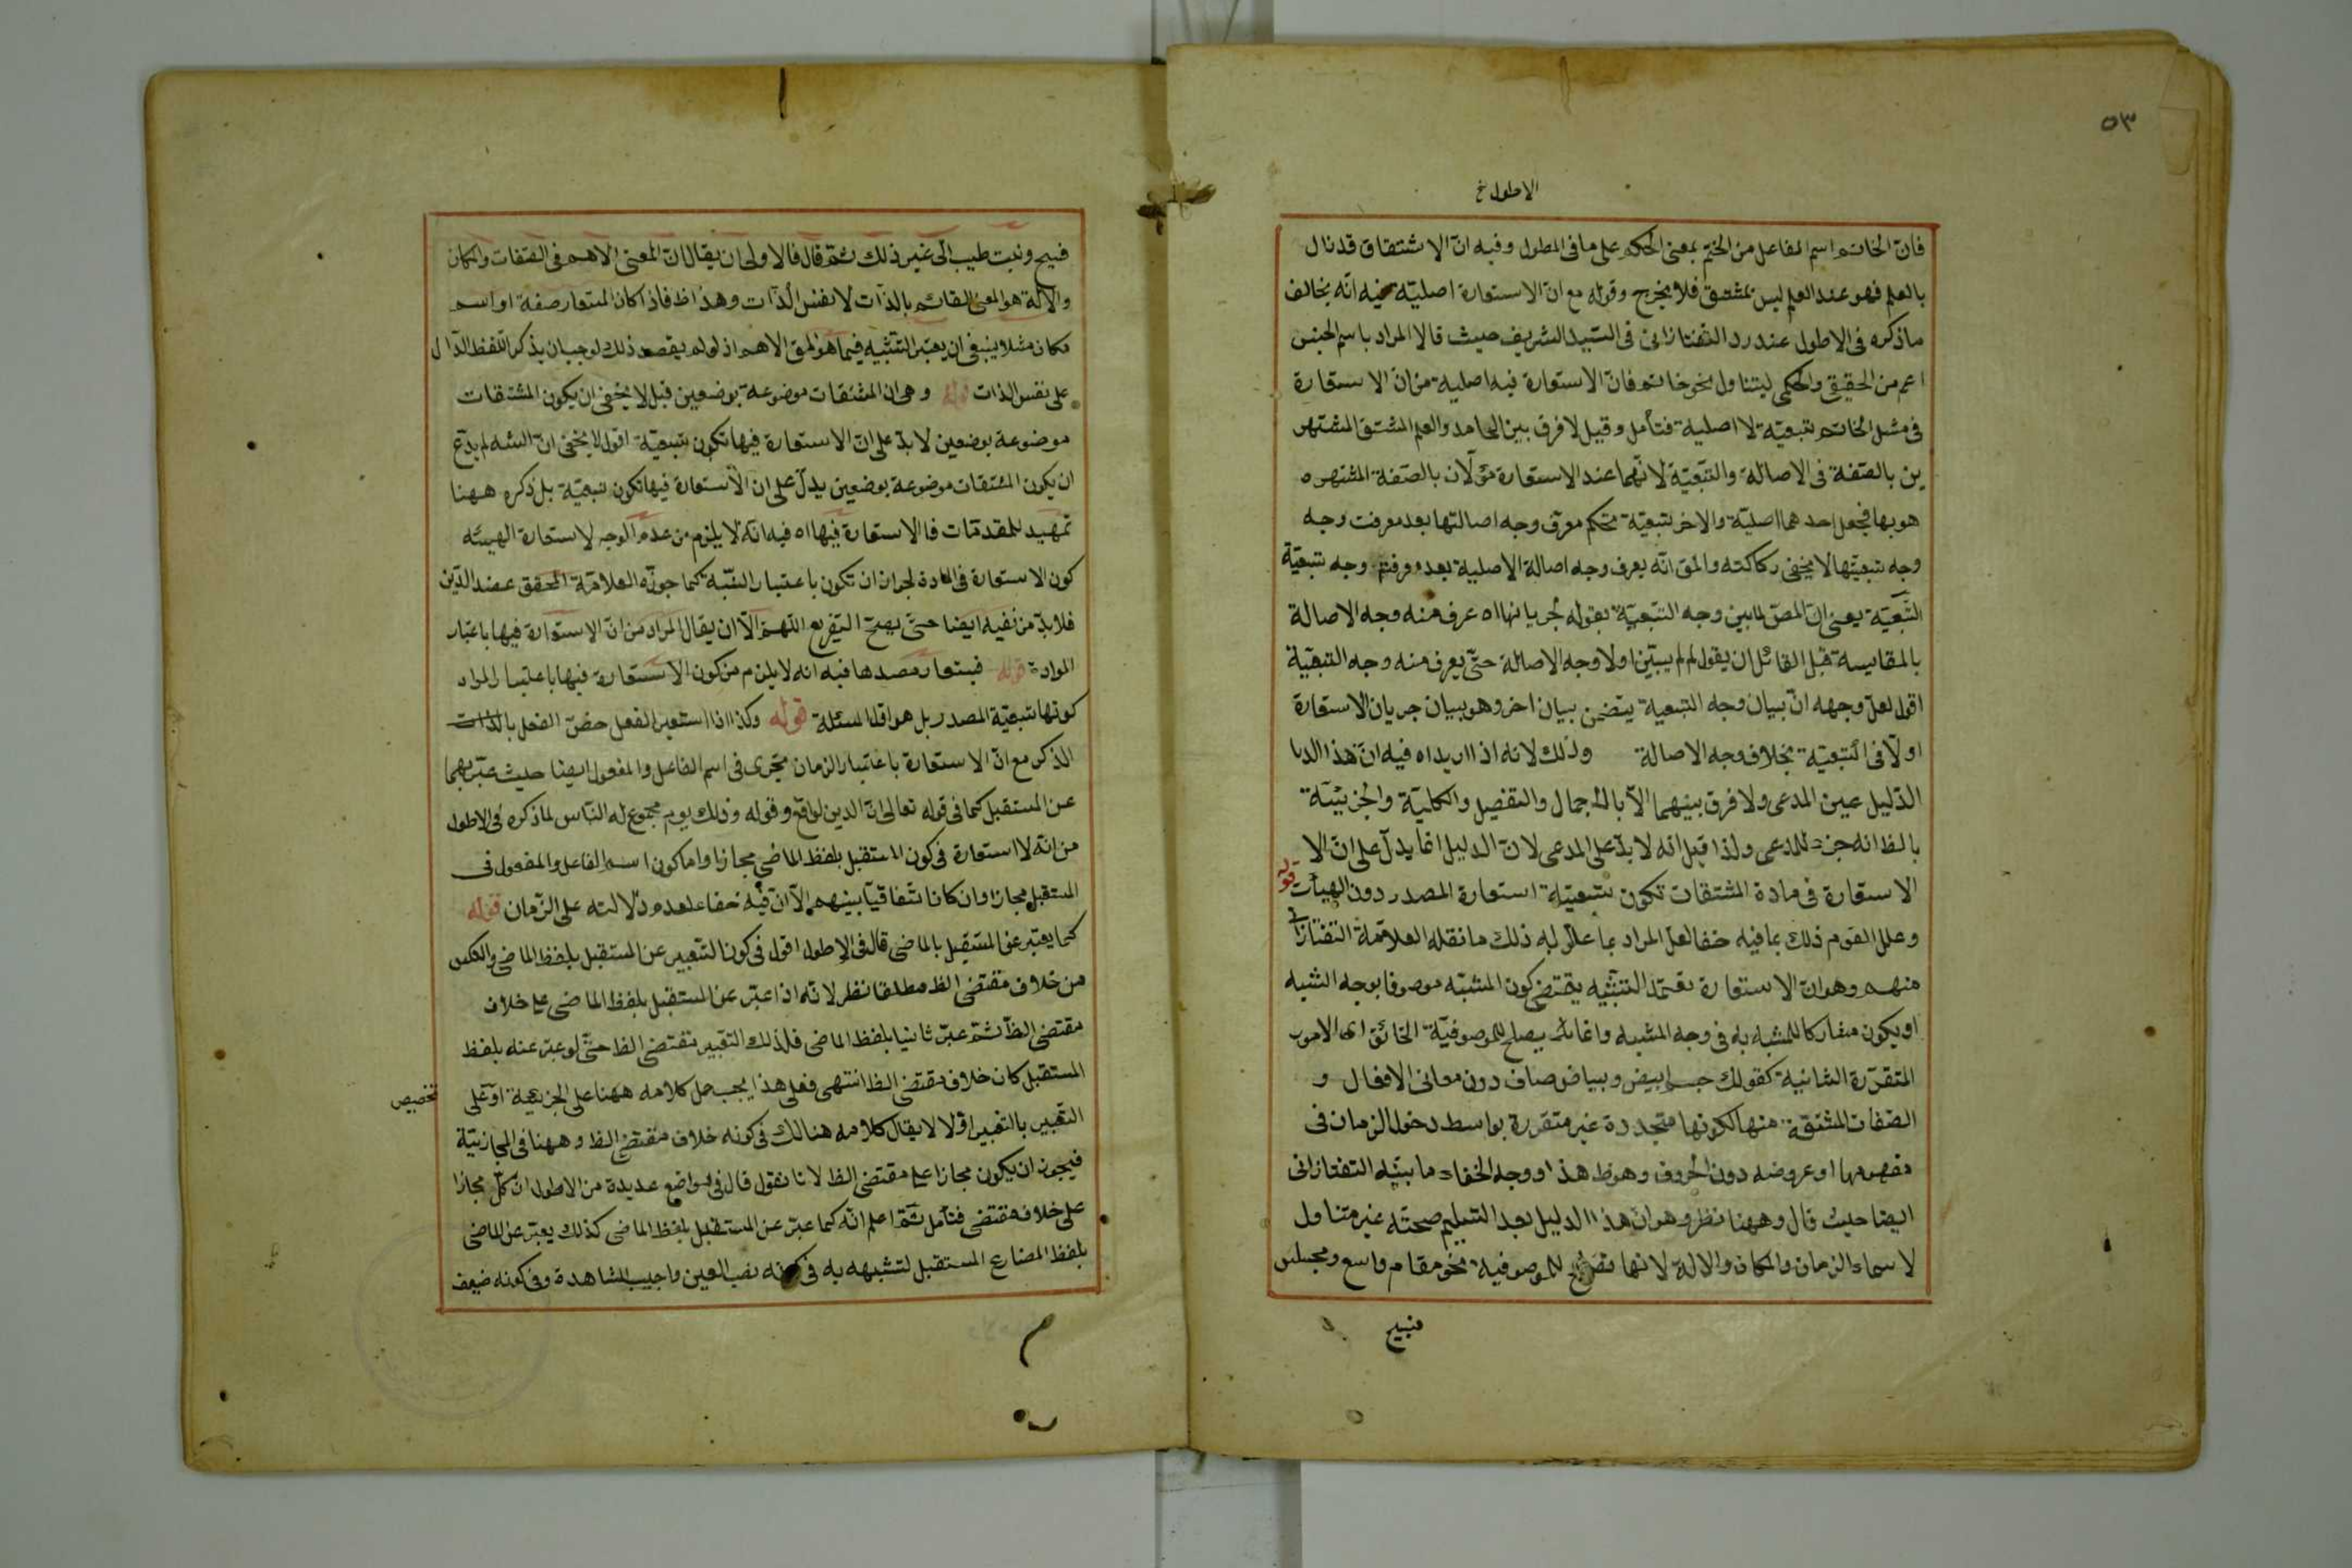 ٥٣
الاطول خ
فانّ الخاتم اسم الفاعل من الختم بمعنى الحكم على ما فى المطول وفيه انّ الاشتقاق قد نال
بالعلم فهو عند العلم ليس بمشتق فلا يخرج وقوله مع انّ الاستعارة اصليّة فيه انّه يخالف
ما ذكره فى الاطول عند رد التفتازانى فى السّيد الشريف حيث قال المراد باسم الجنس
اعم من الحقيقى والحكمى ليتناول نحو خاتم فانّ الاستعارة فيه اصلية من انّ الاستعارة
فى مثل الخاتم تبعيّة لا اصلية فتأمل وقيل لا فرق بين الجامد والعلم المشتق المشتهر
ين بالصّفة فى الاصالة والتبعيّة لانّهما عند الاستعارة مؤلان بالصّفة المشتهره
هو بها فجعل احدهما اصليّة والاخر تبعيّة تحكم معرف وجه اصالتها بعد معرفت وجه
وجه تبعيّتها لا يخفى ركاكته والحق انّه يعرف وجه اصالة الاصلية بعد معرفة وجه تبعيّة
التّبعيّة يعنى انّ المصّ لما بين وجه التبعيّة بقوله لجريانها اه عرف منه وجه الاصالة
بالمقايسة قيل القائل ان يقول لم لم يبيّن اولا وجه الاصالة حتّى يعرف منه وجه التبعيّة
اقول لعلّ وجهه انّ بيان وجه التبعية يتضمن بيان اخر وهو بيان جريان الاستعارة
اولّا فى التبعيّة بخلاف وجه الاصالة وذلك لانه اذا اريد اه فيه انّ هذا الدلا
الدّليل عين المدعى ولا فرق بينهما الّا بالاجمال والتفصيل والكليّة والجزئيّة
بالظ انه جزء للمدعى ولذا قيل انه لابدّ على المدعى لانّ الدليل انما يدلّ على انّ الا
الاستعارة فى مادة المشتقات تكون بتبعيّة استعارة المصدر دون الهيأت قوله
وعلل القوم ذلك بما فيه خفا لعل المراد بما علل به ذلك ما نقله العلاّمة التفتازانى
منهم وهو انّ الاستعارة تعتمد التشبيه يقتضى كون المشبّه موصوفا بوجه الشبه
او يكون مشاركا للمشبه به فى وجه المشبه وانما يصلح للموصوفيّة الحقائق اى الامور
المتقرّرة الثانية كقولك جسم ابيض وبياض صاف دون معانى الافعال و
الصّفات المشتقة منها لكونها متجددة غير متقررة بواسط دخول الزمان فى
مفهومها او عروضه دون الحروف وهو ظ هذا ووجه الخفاء ما بيّنه التفتازانى
ايضا حيث قال وههنا نظر وهو انّ هذا الدليل بعد التسليم صحته غير متناول
لاسماء الزمان والمكان والالة لانها تصلح للموصوفية نحو مقام واسع ومجلس
فسيح
فسيح ونبت طيب الى غير ذلك ثم قال فالاولى ان يقال انّ المعنى الاهم فى الصّفات والمكان
والالة هو المعنى القائم بالذّات لا نفس الذّات وهذا ظ فاذا كان المستعار صفة او اسم
مكان مثلا ينبغى ان يعتبر التشبيه فيما هو المق الاهم اذ لو لم يقصد ذلك لوجب ان يذكر اللّفظ الدّال
على نفس الذات قوله وهى ان المشتقات موضوعة بوضعين قيل لا يخفى ان يكون المشتقات
موضوعة بوضعين لابدّ على انّ الاستعارة فيها تكون تبعيّة اقول لا يخفى انّ الشه لم يدّع
ان يكون المشتقات موضوعة بوضعين يدلّ على ان الاستعارة فيها تكون تبعيّة بل ذكره ههنا
تمهيد للمقدمات فالاستعارة فيها اه فيه انه لا يلزم من عدم الوجه لاستعارة الهيئه
كون الاستعارة فى المادة لجواز ان تكون باعتبار النسبة كما جوزّه العلامّة المحقق عضد الدّين
فلابدّ من نفيه ايضا حتّى يصحّ التفريع اللّهمّ الّا ان يقال المراد من انّ الاستعارة فيها باعتبار
المواد قوله فيستعار مصدرها فيه انه لا يلزم من كون الاستعارة فيها باعتبار المواد
كونها تبعيّة المصدر بل هو اقل المسئلة قوله وكذا اذا استعير الفعل خصّ الفعل بالذات
الذكر مع انّ الاستعارة باعتبار الزمان تجرى فى اسم الفاعل والمفعول ايضا حيث عبّر بهما
عن المستقبل كما فى قوله تعالى انّ الدين لواقع وقوله وذلك يوم مجموع له النّاس لما ذكره فى الاطول
من انّه لا استعارة فى كون المستقبل بلفظ الماضى مجازا واما كون اسم الفاعل والمفعول فى
المستقبل مجازا وان كان اتّفاقيّا بينهم الّا انّ فيه خفاء لعدم دلالته على الزّمان قوله
كما يعتبر عن المستقبل بالماضى قال فى الاطول اقول فى كون التّعبير عن المستقبل بلفظ الماضى والعكس
من خلاف مقتضى الظ مطلقا نظر لانّه اذا عبّر عن المستقبل بلفظ الماضى على خلاف
مقتضى الظ ثمّ عبّر ثانيا بلفظ الماضى فلذلك التّعبير مقتضى الظ حتّى لو عبّر عنه بلفظ
المستقبل كان خلاف مقتضى الظ انتهى فعلى هذا يجب حمل كلامه ههنا على الجزئيّة او على
تخصيص
التّعبير بالتعبير اوّلا لا يقال كلامه هنالك فى كونه خلاف مقتضى الظ وههنا فى المجازيّة
فيجوز ان يكون مجازا على مقتضى الظ لانا نقول قال فى مواضع عديدة من الاطول انّ كلّ مجازا
على خلاف مقتضى فتأمل ثمّ اعلم انّه كما عبّر عن المستقبل بلفظ الماضى كذلك يعبّر عن الماضى
بلفظ المضارع المستقبل لتشبيهه به فى كونه نصب العين واجب المشاهدة وفى كونه ضعيف